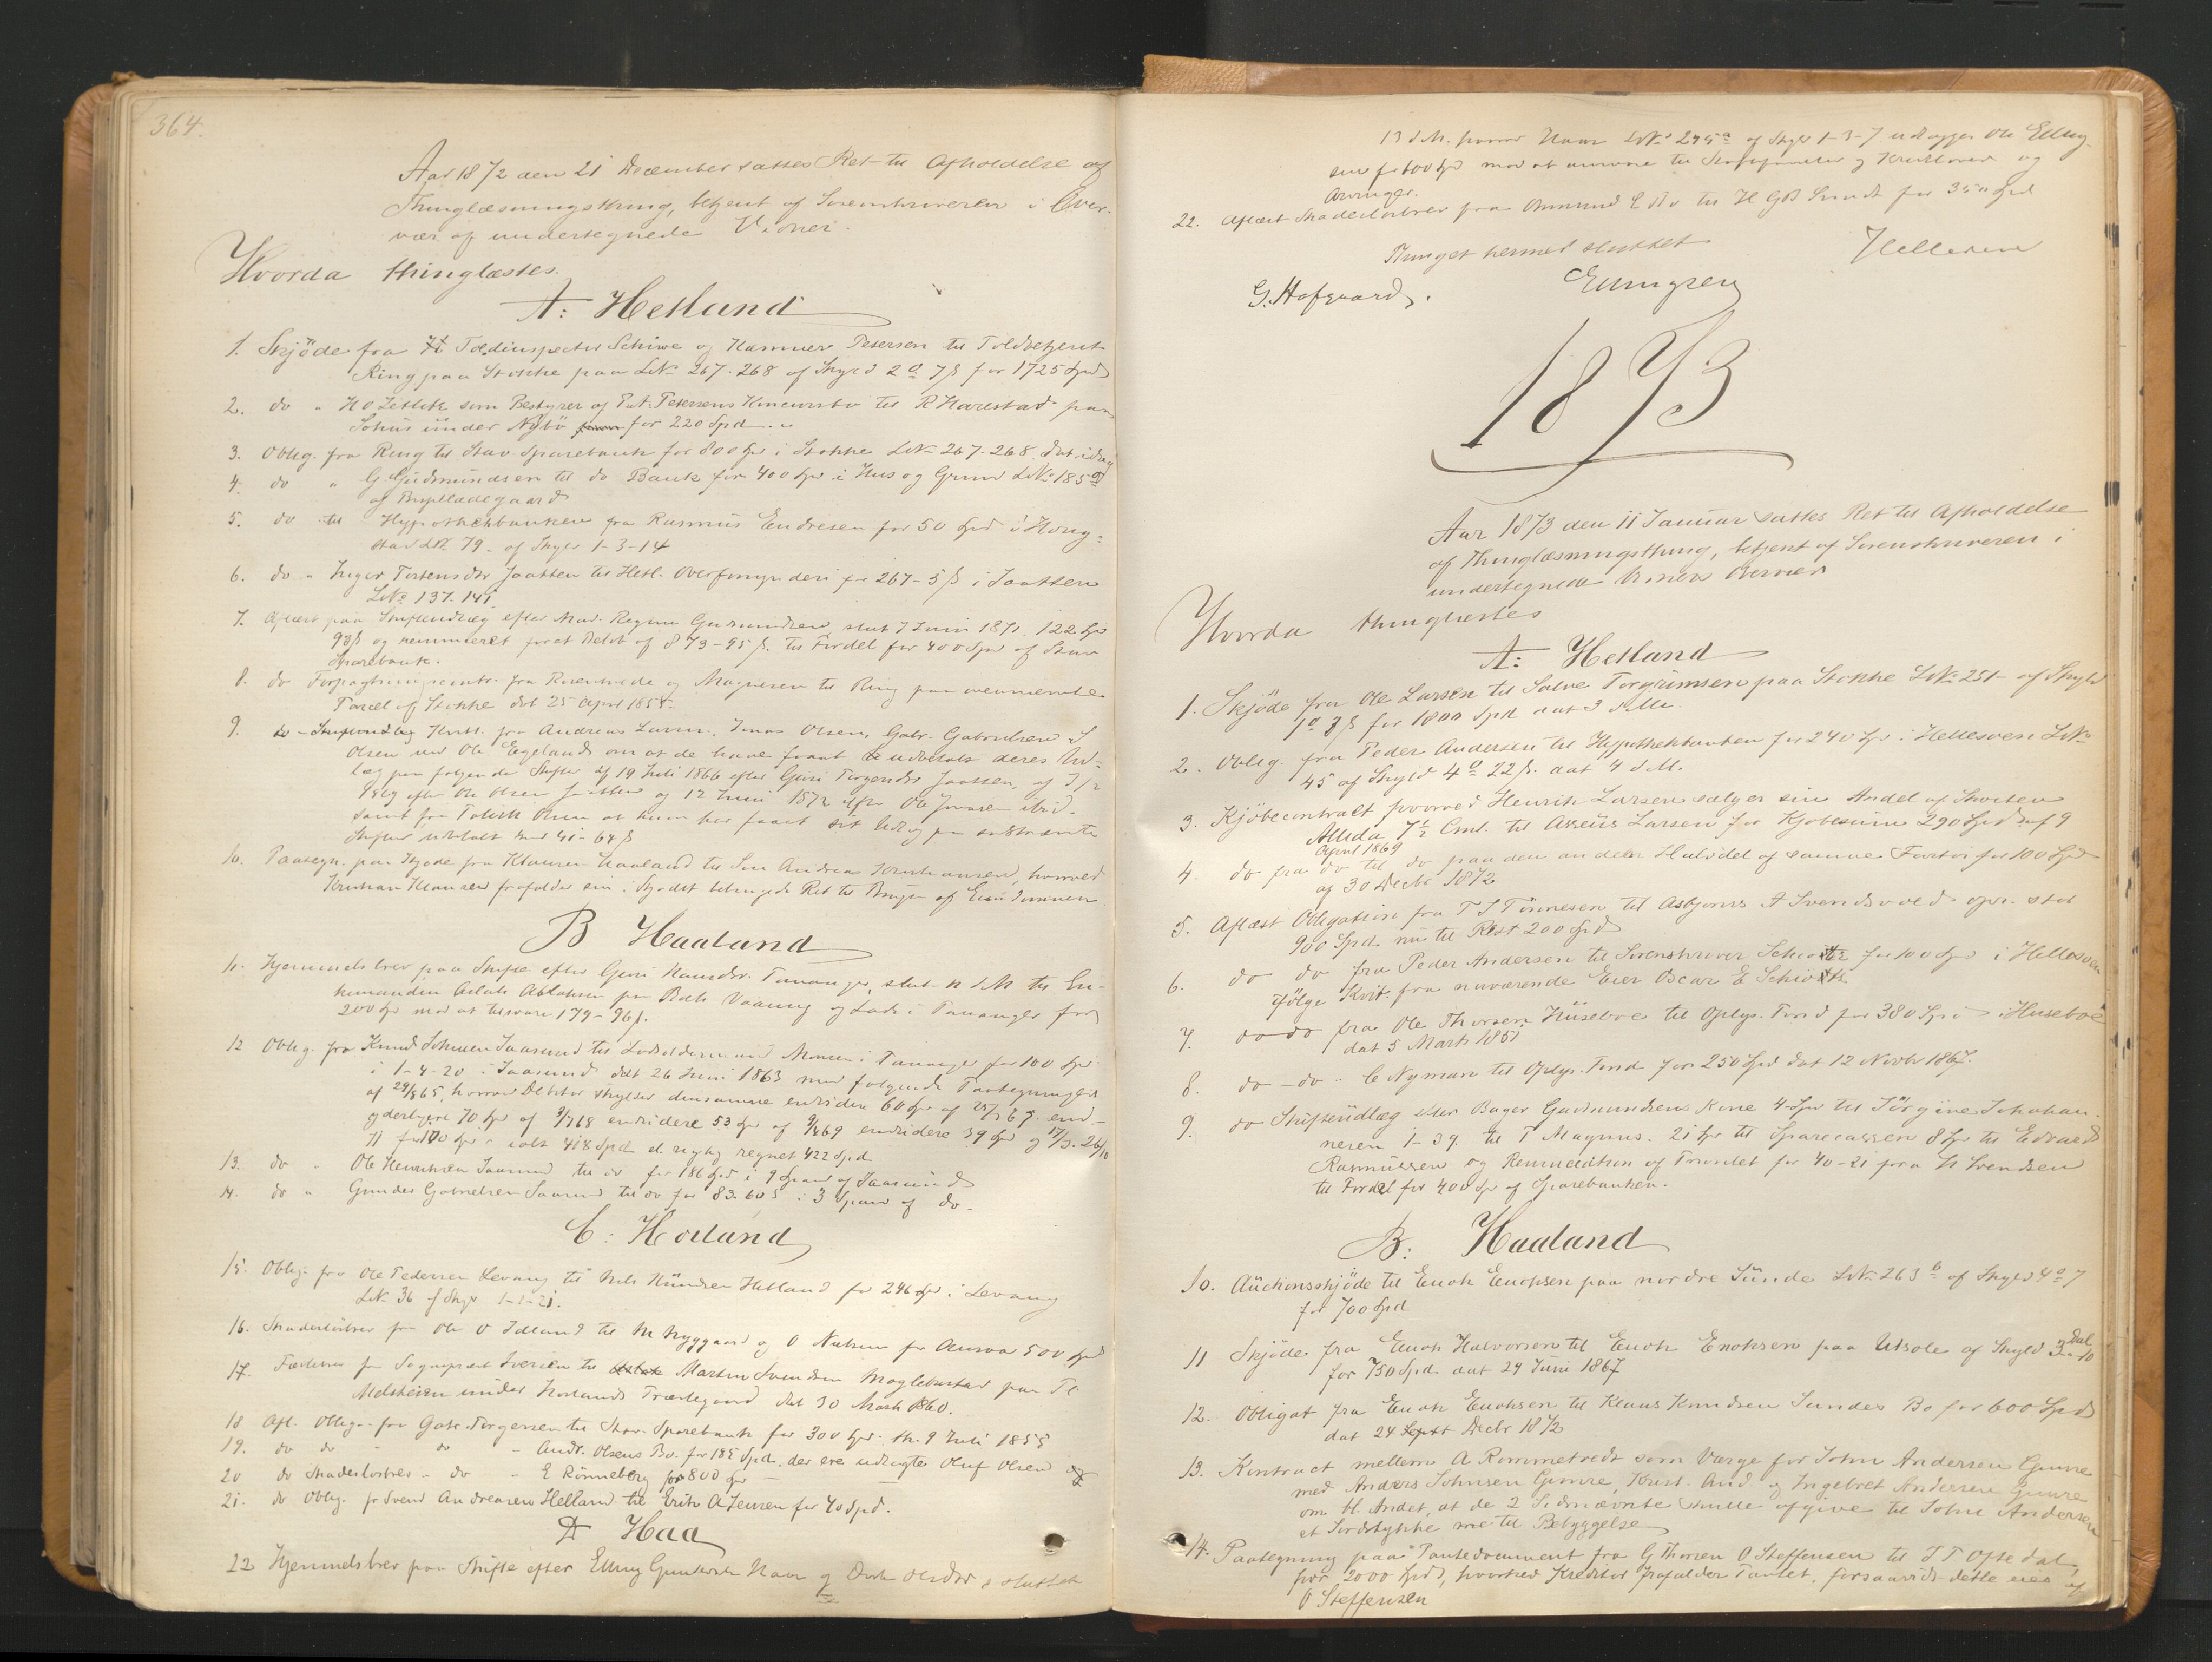 364.
Aar 1872 den 21 December sattes Ret til Afholdelse af
Thinglæsningsthing, betjent af Sorenskriveren i Over-
vær af undertegnede Vidner.
Hvorda thinglæstes.
A: Hetland
1. Skjöde fra Toldinspecter Schiwe og Kæmner Petersen til Toldbetjent
Ring paa Stokke paa LNo 267. 268 af Skyld 2 ₰ 7 ß for 1725 Spd
2. do " H O Zetlitz som Bestyrer af Petersens Concursbo til R Harestad paa
Sohus under Nybö for 220 Spd
3. Oblig. fra Ring til Stav. Sparebank for 800 Spd i Stokke LNo 267. 268. dat. idag
4. do " G Gudmundsen til do Bank for 400 Spd i Hus og Grund LNo 185
af Bispeladegaard
5. do til Hypothekbanken fra Rasmus Endresen for 50 Spd i Hong-
stad LNo 79 af Skyld 1-3-14
6. do " Inger Tostensdtr Jaatten til Hetl. Overformynderi for 267-5 ß i Jaatten
LNo 137. 141
7. Aflæst paa Skifteudlæg efter Mad. Regine Gudmundsen, slut 7 Juni 1871, 122 Spd
98 ß og renunceret for et Beløb af 873-95 ß. til Fordel for 400 Spd af Stav
Sparebank.
8. do Forpagtningscontr. fra Rosenkilde og Magnesen til Ring paa ovennævnte
Parcel af Stokke dat 25 April 1855
9. do Skifteudlæg Kvitt. fra Andreas Larsen, Jonas Olsen, Gabr. Gabrielsen S
Olsen ved Ole Egeland om at de have faaet udbetalt deres Ud-
læg paa følgende Skifter af 19 Juli 1866 efter Guri Torgersdtr Jaatten, af 7/12
1869 efter Ole Olsen Jaatten og 12 Juni 1872 efter Ole Jonasen ibid.
samt fra Tollich Olsen at have faaet sit Udlæg paa sidstnævnte
Skifter udbetalt med 41-64 ß
10. Paategn. paa Skjöde fra Klausen Haaland til Søn Andreas Kristiansen, hvorved
Kristian Klausen frafalder sin i Skjødet betingede Ret til Brugen af Eiendommen
B Haaland
11. Hjemmelsbrev paa Skifte efter Guri Hansdtr. Tananger, slut. 11 d.M. til En-
kemanden Aslak Aslaksen paa Vaaning og Lade i Tananger for
200 Spd mod at tilsvare 179-96 ß.
12 Oblig. fra Knud Johnsen Jaasund til Lodsoldermand Monsen i Tananger for 100 Spd
i 1-4-20 i Jaasund dat 26 Juni 1863 med følgende Paategninger
af 29/8 65, hvorved Debitor skylder densamme endvidere 60 Spd af 25/3 67. end-
yderligere 70 Spd af 9/7 68 endvidere 53 Spd af 9/8 69 endvidere 39 Spd og 17/3. 26/10
71 for 100 Spd ialt 418 Spd el rigtig regnet 422 Spd
13. do " Ole Henriksen Jaasund til do for 186 Spd i 9 Spand af Jaasund
14. do " Gunder Gabrielsen Jaasund til do for 83. 60 ß i 3 Spand af do.
C: Höiland
15. Oblig. fra Ole Pedersen Levang til Nils Knudsen Hetland for 246 Spd i Levang
LNo 36 af Skyld 1-1-21.
16. Skadeslösbrev fra Ole O Idland til M Nyggaard og O Nielsen for Ansvar 500 Spd
17. Fæstebrev fra Sogneprest Iversen til Martin Svendsen Moglebustad paa Pl
Melsheien under Höilands Præstegaard dat 30 Marts 1860.
18 Afl. Oblig. fra Gabr. Torgersen til Stav. Sparebank for 300 Spd th. 9 Juli 1855
19. do do - do - Andr. Olsens Bo. for 185 Spd. der ere udlagte Oluf Olsen
20 do Skadeslösbrev - do - E Rönneberg for 800 Spd
21. do Oblig. fr Svend Andreasen Helland til Erik A Jensen for 40 Spd.
D Haa
22 Hjemmelsbrev paa Skifte efter Elling Haar og Olsdtr, sluttet
13 d.M. hvorved Haar LNo 245a af Skyld 1-3-7 udlægges Ole Elling-
sen for 600 Spd mod at ansvare til Skifteforvalter og Kreditorer og
Arvinger.
22. Aflæst Skadeslösbrev fra Ommund til H GB Sundt for 350 Spd
Thinget hermed sluttet
Hellesen
G. Hofgaard. Ellingsen
1873
Aar 1873 den 11 Januar sattes Ret til Afholdelse
af Thinglæsningsthing, betjent af Sorenskriveren i
undertegnede Vidners Overvær
Hvorda thinglæstes
A: Hetland
1. Skjöde fra Ole Larsen til Salve Torgrimsen paa Stokke LNo 251 af Skyld
1 ₰ 8 ß for 1800 Spd dat 3 d.M.
2. Oblig. fra Peder Andersen til Hypothekbanken for 240 Spd i Hellesøen LNo
45 af Skyld 4 ₰ 22 ß. dat 4 d.M.
3. Kjöbecontract hvorved Henrik Larsen sælger sin Andel af Skoiten
Allida 7 1/2 Cml. til Asseus Larsen for Kjöbesum 290 Spd af 9
April 1869
4. do fra do til do paa den anden Halvdel af samme Fartöi for 100 Spd
af 30 Decbr 1872
5. Aflæst Obligation fra T S Tönnesen til Asbjörns A Svendsvold opr. stor
900 Spd nu til Rest 200 Spd
6. do do fra Peder Andersen til Sorenskriver Schiötz for 100 Spd i Hellesøen
ifölge Kvit. fra nuværende Eier Oscar E Schiötz
7. do do fra Ole Thorsen Huseboe til Oplys. Fond for 380 Spd i Huseboe
dat 5 Marts 1851
8. do - do - C Nyman til Oplys. Fond for 250 Spd dat 12 Novbr 1867.
9. do Skifteudlæg efter Bager Gudmundsens Kone 4 Spd til Jörgine Johahan-
nesen 1-39. til T Magnus. 21 Spd til Sparecassen 8 Spd til Edvard
Rasmussen og Renunciation af for 40-21 fra H Svendsen
til Fordel for 400 Spd af Sparebanken.
B: Haaland
10. Auctionsskjöde til Enok Enoksen paa nordre Sunde LNo 263b af Skyld 4 ₰ 7
for 700 Spd
11 Skjöde fra Enok Halvorsen til Enok Enoksen paa Utsole af Skyld 3 Dal. 10
for 750 Spd. dat 24 Juni 1867
12. Obligat fra Enok Enoksen til Klaus Knudsen Sundes Bo for 600 Spd
dat 24 Septr Decbr 1872
13. Kontract mellem A Rommetvedt som Værge for John Andersen Gimre
med Anders Johnsen Gimre, Krist. And. og Ingebret Andersen Gimre
om bl. Andet, at de 2 Sidnævnte skulle afgive til John Andersen
et Jordstykke til Bebyggelse
14. Paategning paa Pantedocument fra G Thorsen O Steffensen til T T Oftedal
for 2000 Spd, hvorved Kreditor frafalder Pantet, forsaavidt dette eies af
O Steffensen